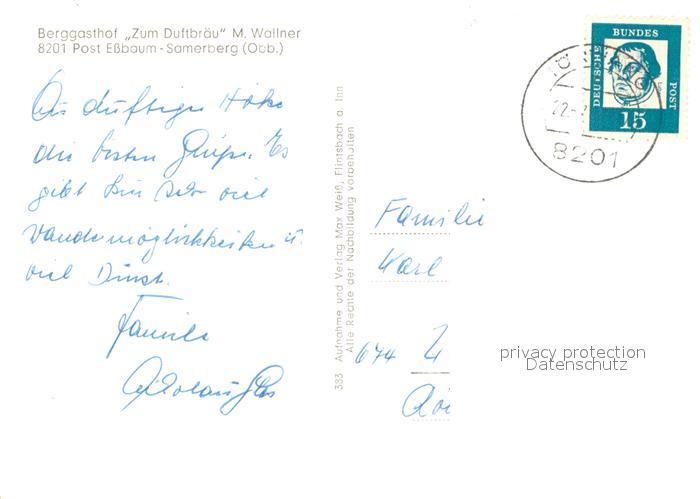 Berggasthof „Zum Duftbräu" M. Wallner
8201 Post Eßbaum - Samerberg (Obb.)
Aus duftiger Höhe
die besten Grüße. Es
gibt hier sehr viel
Wandermöglichkeiten u.
viel Dunst.
Familie
383 Aufnahme und Verlag Max Weiß, Flintsbach a. Inn
Alle Rechte der Nachbildung vorbehalten
DEUTSCHE
BUNDES
POST
15
22.
8201
Familie
Karl
674
privacy protection
Datenschutz